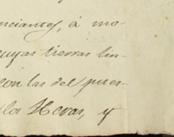 nciantes, á mo-
cuyas tierras lin-
con las del pues-
los Heras, y